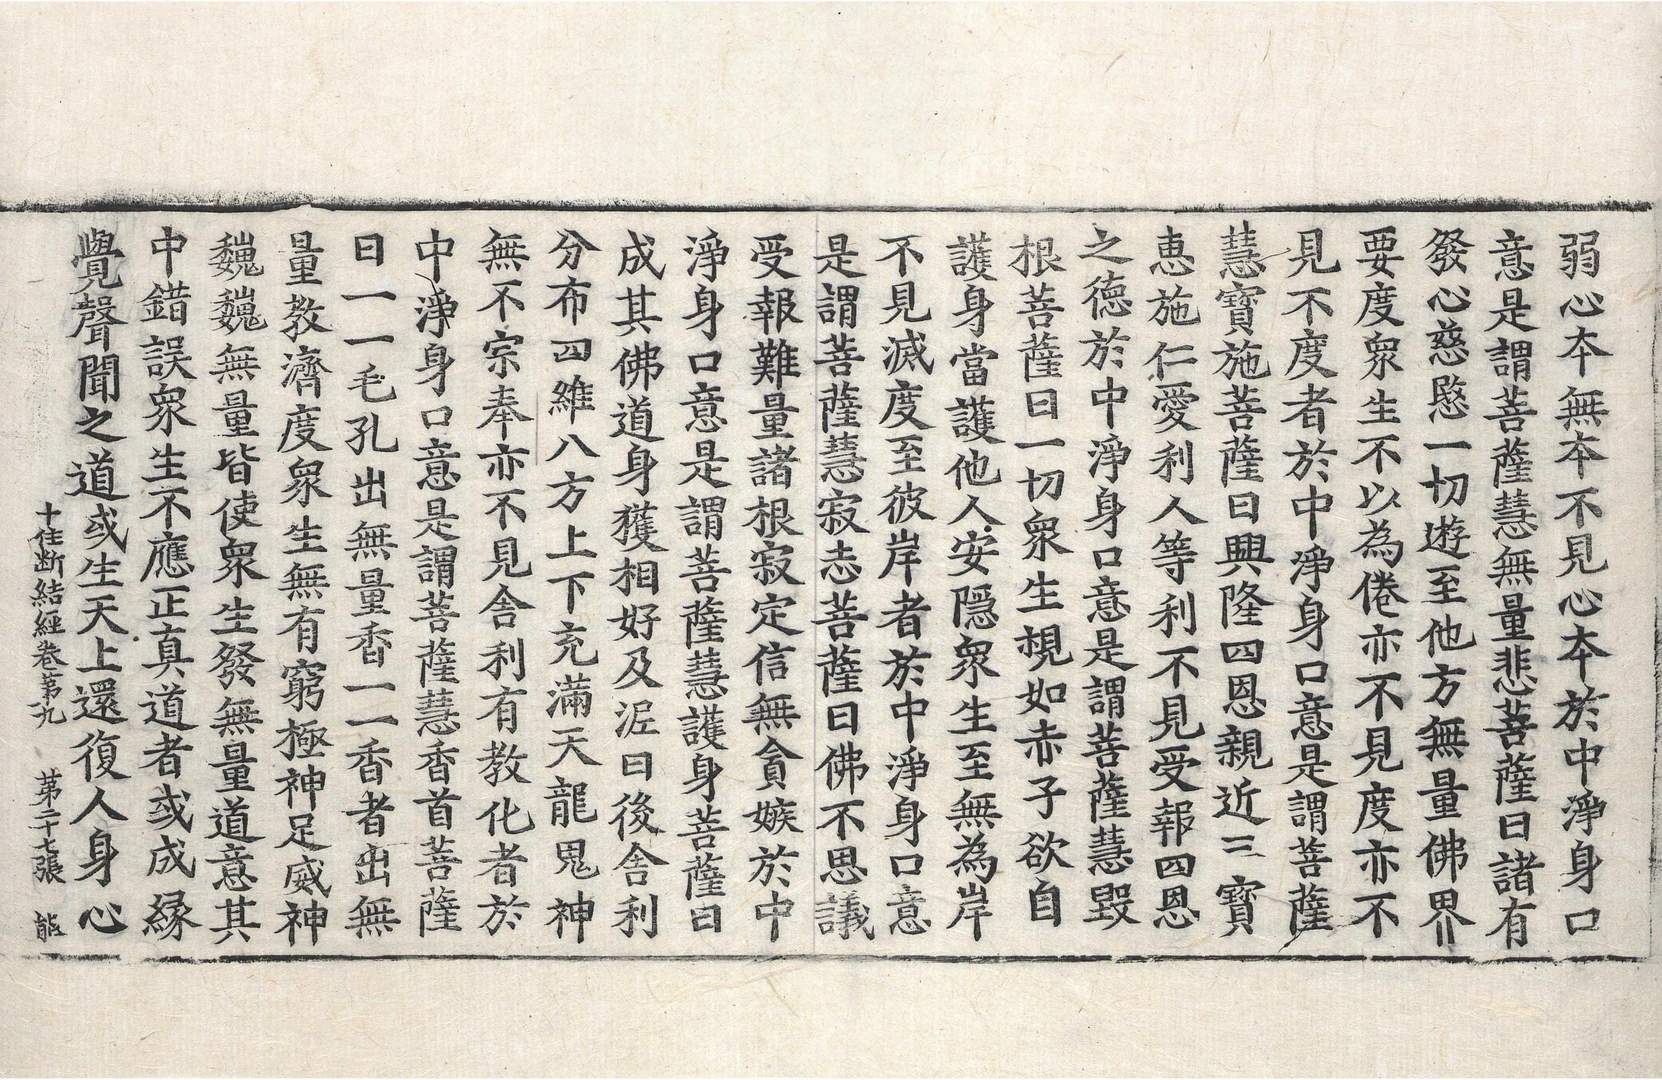 弱心本無本不見心本於中淨身口
意是謂菩薩慧無量悲菩薩曰諸有
發心慈愍一切遊至他方無量佛界
要度衆生不以為倦亦不見度亦不
見不度者於中淨身口意是謂菩薩
慧寶施菩薩曰興隆四恩親近三寶
惠施仁愛利人等利不見受報四恩
之德於中淨身口意是謂菩薩慧毀
根菩薩曰一切衆生視如赤子欲自
護身當護他人安隱衆生至無為岸
不見滅度至彼岸者於中淨身口意
是謂菩薩慧寂志菩薩曰佛不思議
受報難量諸根寂定信無貪嫉於中
淨身口意是謂菩薩慧護身菩薩曰
成其佛道身獲相好及泥曰後舍利
分布四維八方上下充滿天龍鬼神
無不宗奉亦不見舍利有教化者於
中淨身口意是謂菩薩慧香首菩薩
曰一一毛孔出無量香一一香者出無
量教濟度衆生無有窮極神足威神
巍巍無量皆使衆生發無量道意其
中錯誤衆生不應正真道者或成緣
覺聲聞之道或生天上還復人身心
十住断結經卷第九 第二十七張 能